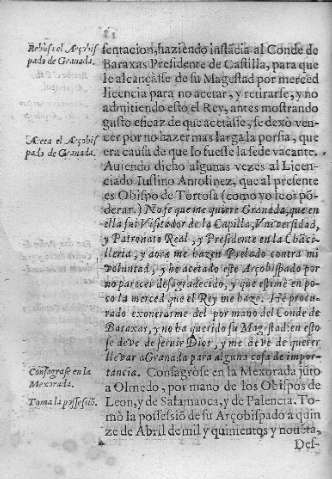 Rehusa el Arçobis
pado de Granada.
sentacion, haziendo instãcia al Conde de
Baraxas Presidente de Castilla, para que
le alcançasse de su Magestad por merced
licencia para no acetar, y retirarse, y no
admitiendo esto el Rey, antes mostrando
gusto eficaz de que acetasse, se dexò ven-
cer por no hazer mas larga la porfia, que
Aceta el Arçobis
pado de Granada.
era causa de que lo fuesse la sede vacante.
Auiendo dicho algunas vezes al Licen-
ciado Iustino Antolinez, que al presente
es Obispo de Tortosa (como yo le oì põ-
derar.) No se que me quiere Granada, que en
ella fui Visitador de la Capilla, Vniuersidad,
y Patronato Real, y Presidente en la Chãci-
lleria, y aora me hazen Prelado contra mi
voluntad, y he acetado este Arçobispado por
no parecer desagradecido, y que estimè en po-
co la merced que el Rey me haze. Hè procu-
rado exonerarme del por mano del Conde de
Baraxas, y no ha querido su Magestad: en esto
se deve de servir Dios, y me deve de querer
llevar a Granada para alguna cosa de impor-
Consagrose en la
Mexorada.
tancia. Consagròse en la Mexorada jũto
a Olmedo, por mano de los Obispos de
Toma la possessiõ.
Leon, y de Salamanca, y de Palencia. To-
mò la possessiõ de su Arçobispado a quin
ze de Abril de mil y quinientos y noueta,
Des-